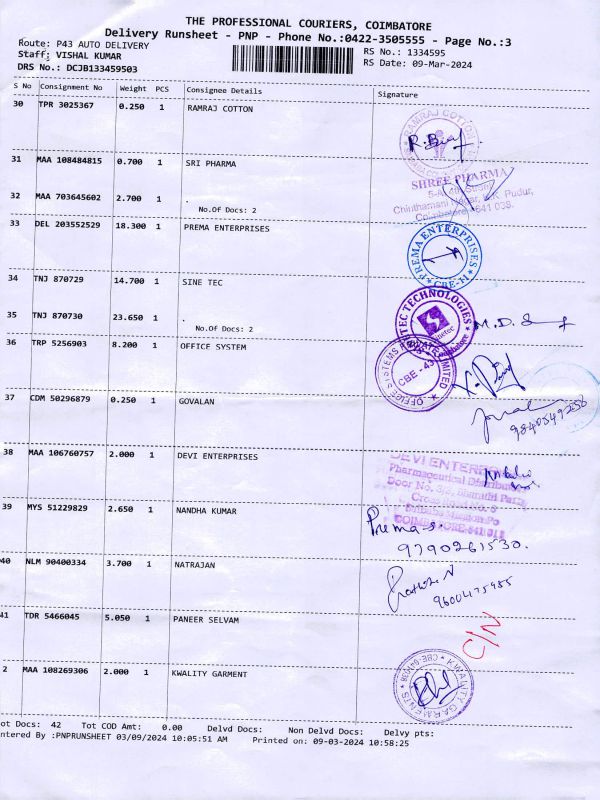 THE PROFESSIONAL COURIERS, COIMBATORE
Delivery Runsheet - PNP - Phone No.:0422-3505555 - Page No.:3
Route: P43 AUTO DELIVERY
RS No.: 1334595
Staff: VISHAL KUMAR
RS Date: 09-Mar-2024
DRS No.: DCJB133459503
S No Consignment No Weight PCS Consignee Details Signature
30 TPR 3025367 0.250 1 RAMRAJ COTTON
RAMRAJ COTTON
31 MAA 108484815 0.700 1 SRI PHARMA
SHREE PHARMA
32 MAA 703645602 2.700 1 .
No.Of Docs: 2
Pudur,
Coimbatore - 641 038.
33 DEL 203552529 18.300 1 PREMA ENTERPRISES
PREMA ENTERPRISES
CBE-11
34 TNJ 870729 14.700 1 SINE TEC
TEC TECHNOLOGIES
Coimbatore
35 TNJ 870730 23.650 1 .
No.Of Docs: 2
M.D.
36 TRP 5256903 8.200 1 OFFICE SYSTEM
OFFICE SYSTEMS PRIVATE LIMITED
CBE - 43
37 CDM 50296879 0.250 1 GOVALAN
38 MAA 106760757 2.000 1 DEVI ENTERPRISES
DEVI ENTERPRISES
Pharmaceutical Distributors
Door No.
Cross
39 MYS 51229829 2.650 1 NANDHA KUMAR
COIMBATORE-641 011
Prema-s
9790261530.
40 NLM 90400334 3.700 1 NATRAJAN
41 TDR 5466045 5.050 1 PANEER SELVAM
C/N
2 MAA 108269306 2.000 1 KWALITY GARMENT
KWALITY GARMENTS
ot Docs: 42 Tot COD Amt: 0.00 Delvd Docs: Non Delvd Docs: Delvy pts:
ntered By :PNPRUNSHEET 03/09/2024 10:05:51 AM Printed on: 09-03-2024 10:58:25